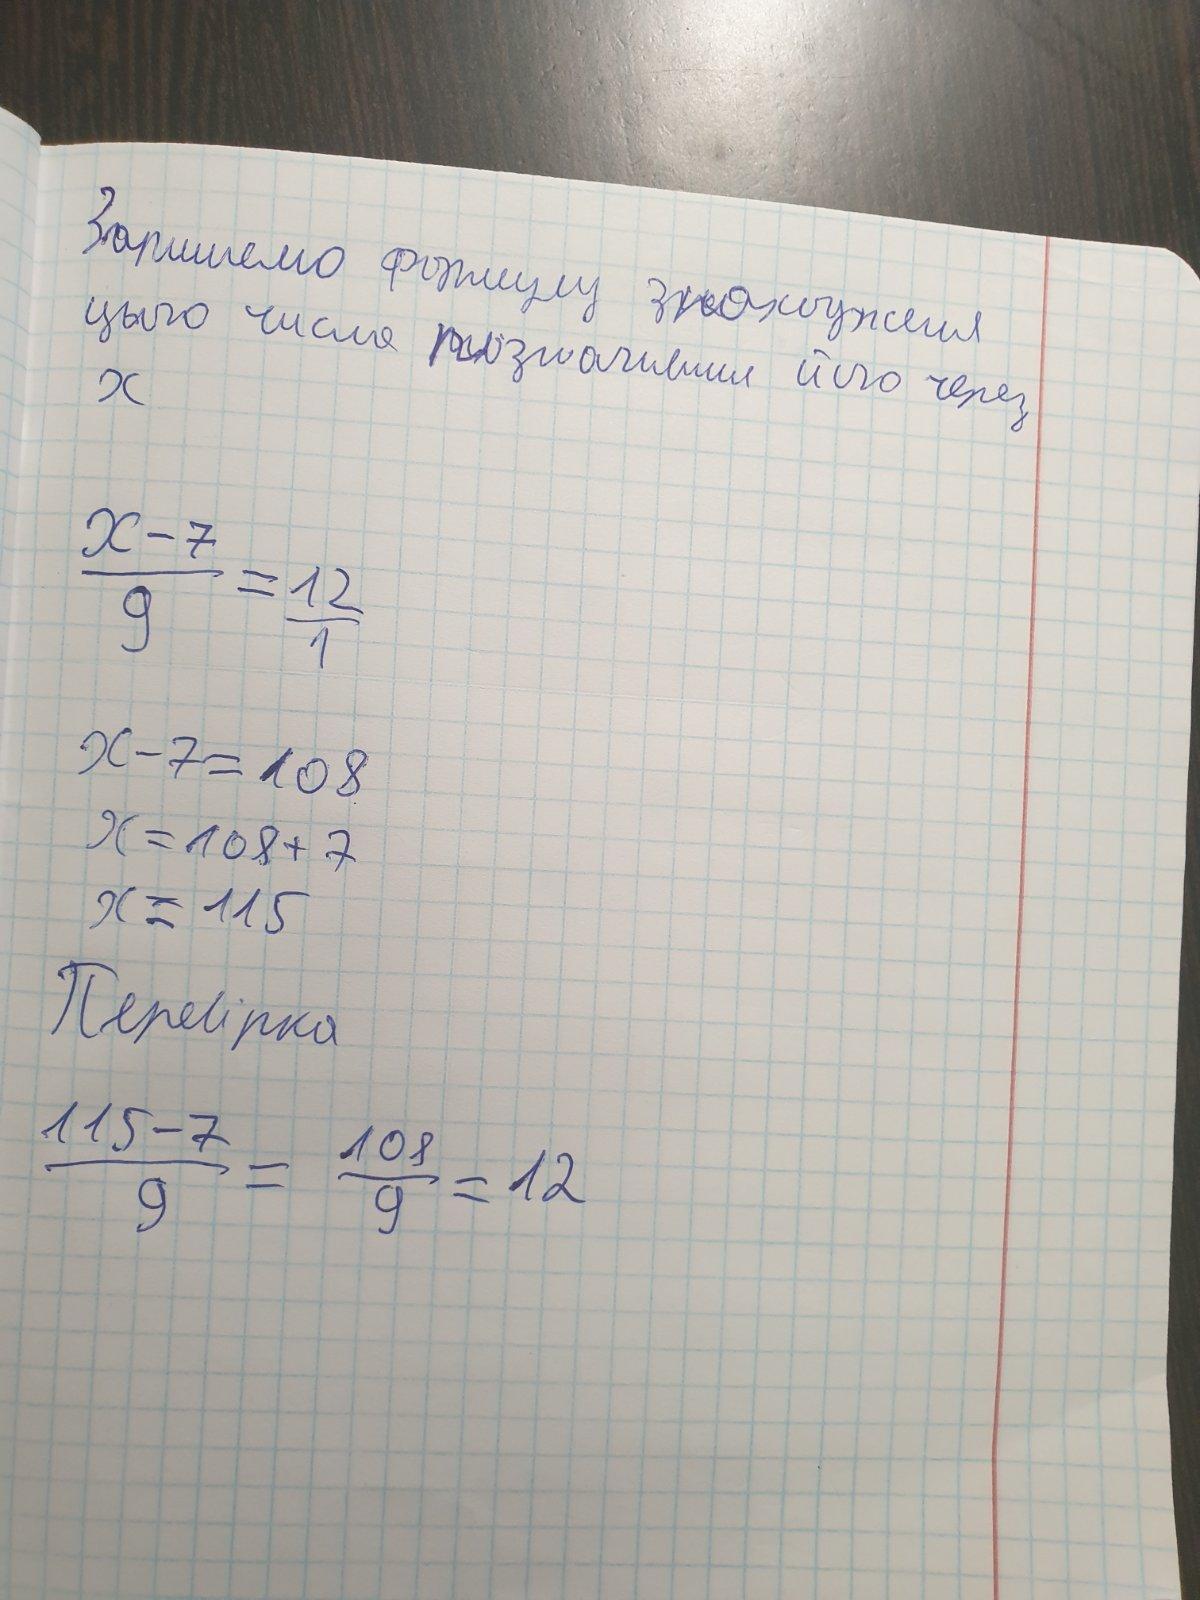 Запишемо формулу знаходження
цього числа позначивши його через
x
x-7/9 = 12/1
x-7=108
x=108+7
x=115
Перевірка
115-7/9 = 108/9 = 12